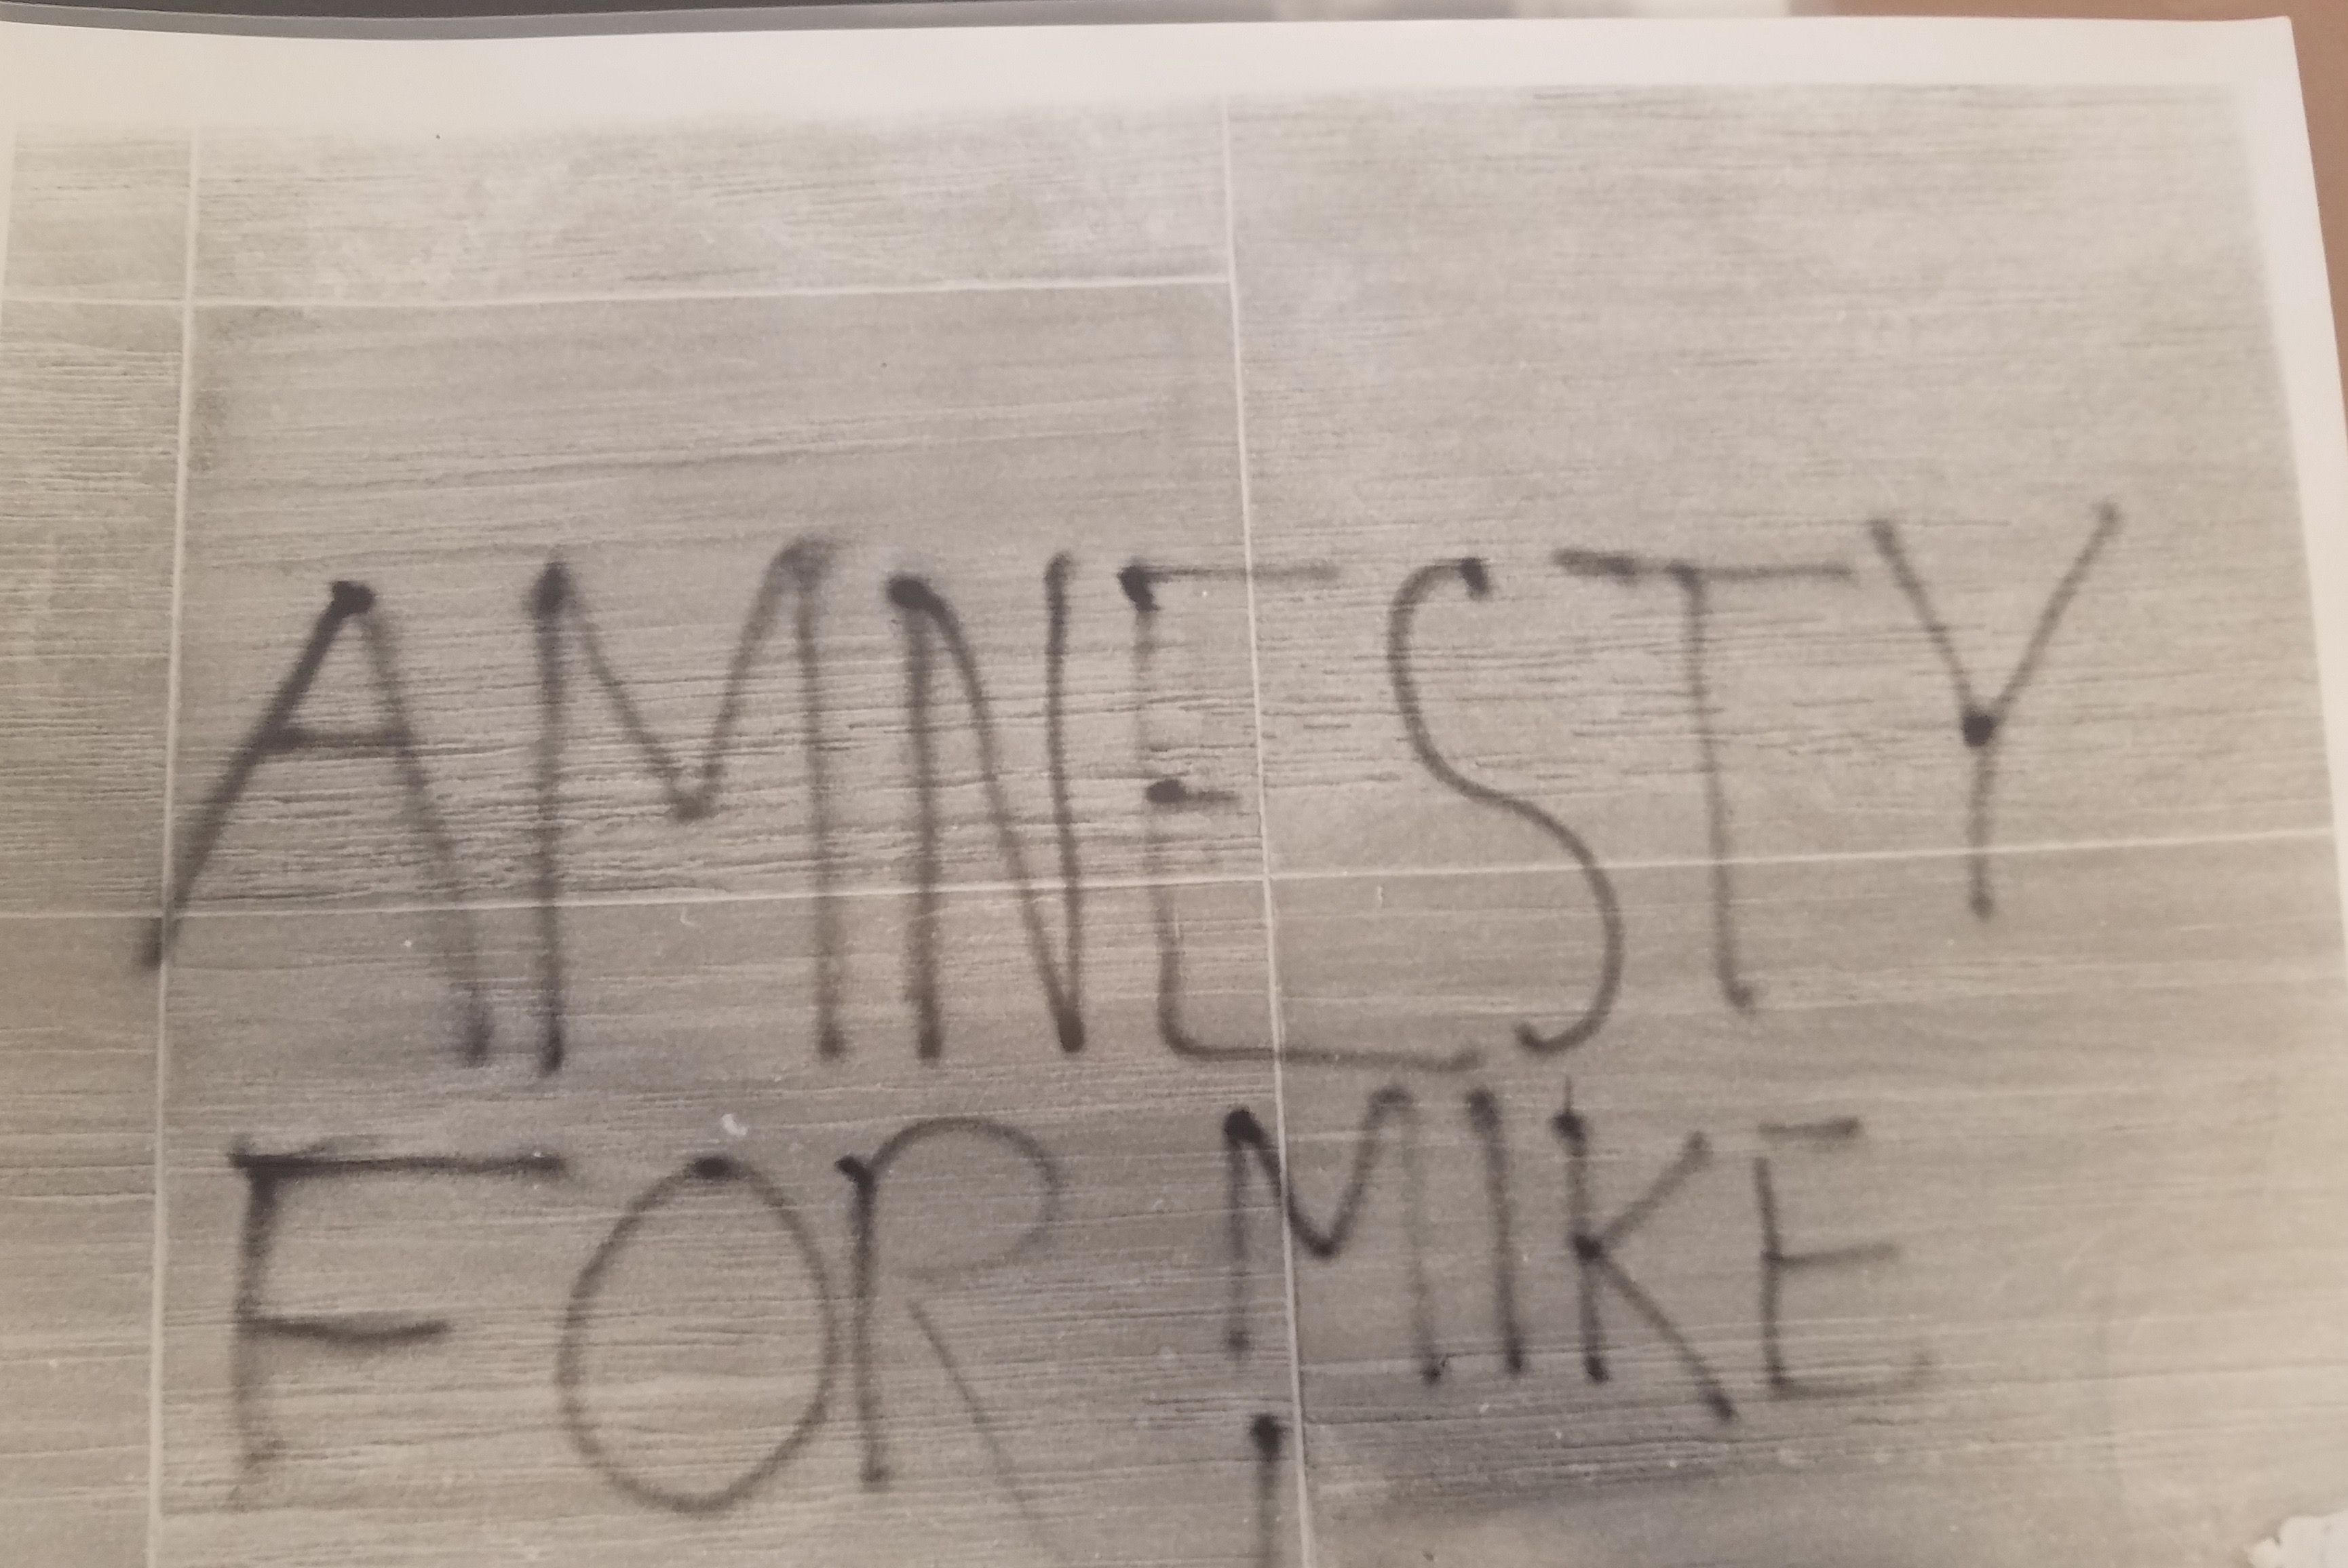 AMNESTY
FOR MIKE